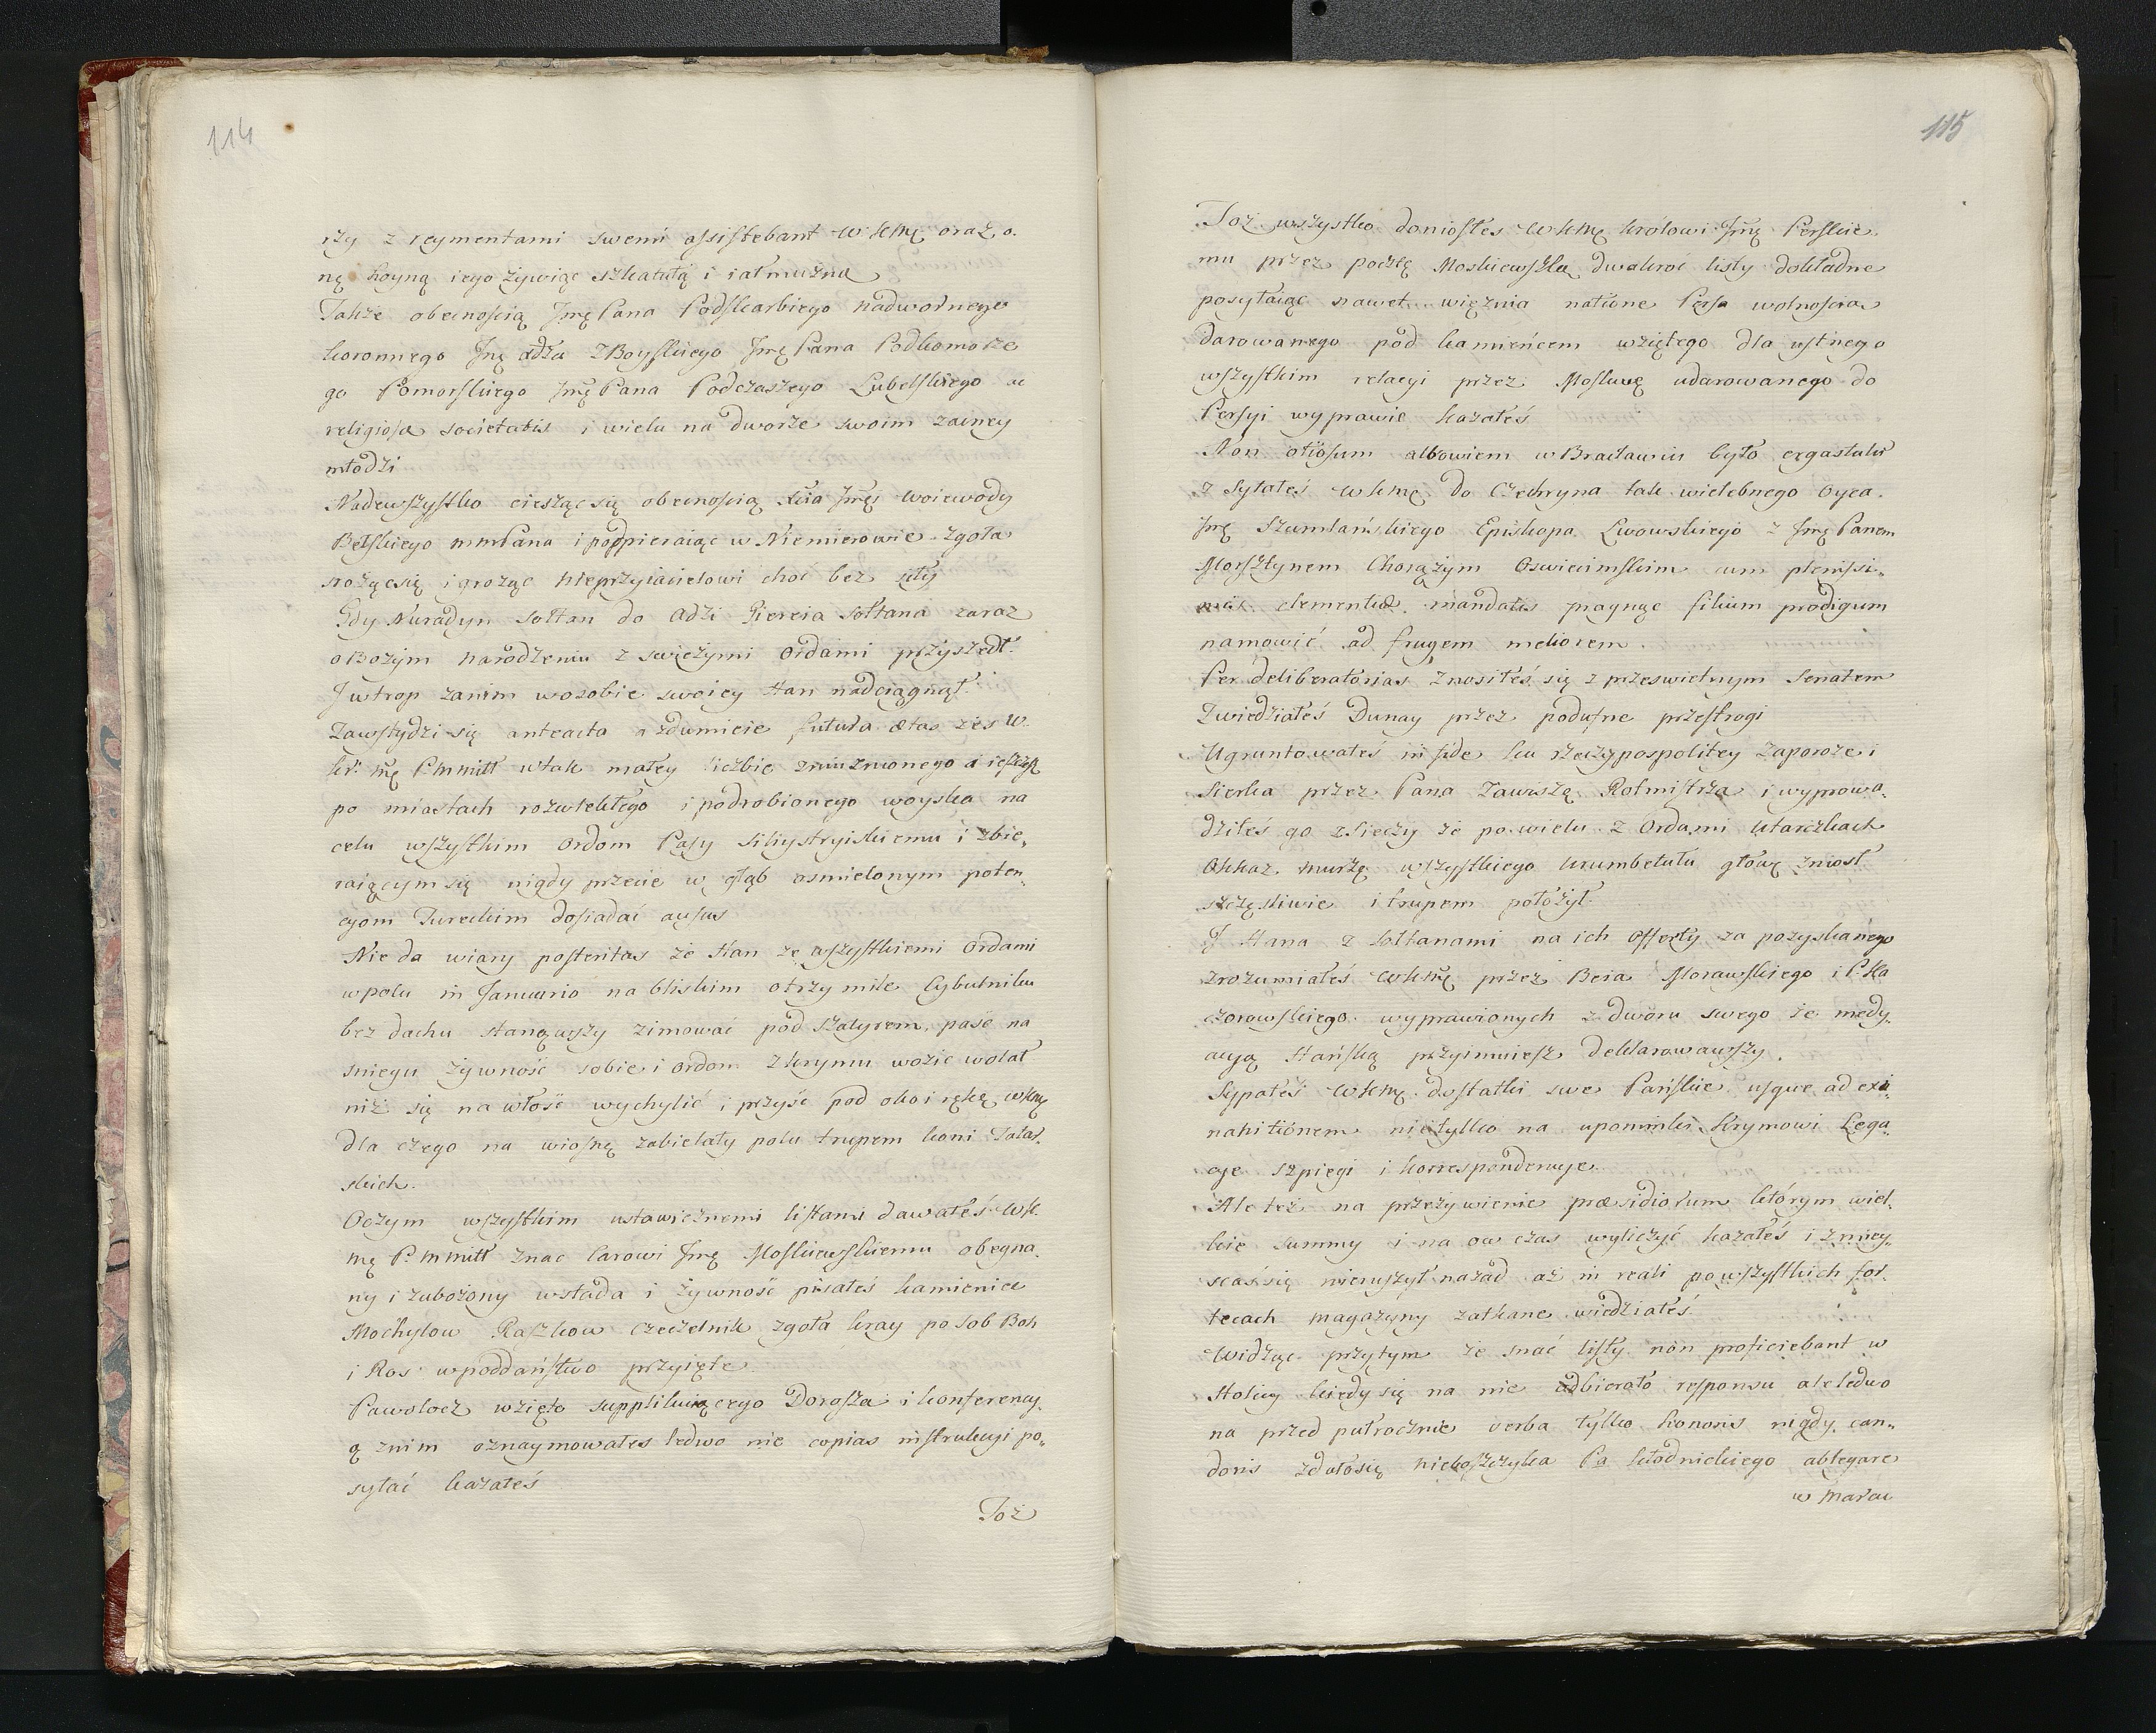 114
rzy z reymentami swemi assistebant WKMę oraz o.
nę hoyną iego żywiąc szkatułą i iałmużną
Także obecnością Jmę Pana Podskarbiego nadwornego
koronnego Jmę xdza Zboyskiego Jmę Pana Podkomorze
go Pomorskiego Jmę Pana Podczaszego Lubelskiego ac
religiosa societatis i wielu na dworze swoim zacney
młodzi
Nadewszystko ciesząc się obecnością Xcia Jmci woiewody
Bełskiego mmPana i podpieraiąc w Niemierowie zgoła
srożąc się i grożąc nieprzyiacielowi choć bez siły
Gdy Nuradyn Sołtan do Adzi Giereia Sołtana zaraz
o Bożym narodzeniu z swieżymi Ordami przyszedł.
J wtrop zanim wosobie swoiey Han nadciągnął.
Zawstydzi się anteacta a zdumieie futura ætas żeś W.
Kr. Mę P.Mmiłł wtak małey liczbie zmużnionego a ieszcze
po miastach rozwlekłego i podrobionego woyska na
celu wszystkim Ordom Paszy Siliystryiskiemu i zbie„
raiącym się nigdy przecie w głąb osmielonym poten„
cyom Tureckim dosiadać ausus
Nie da wiary posteritas że Han ze wszystkiemi Ordami
wpolu in Januario na bliskim o trzy mile Cybulniku
bez dachu stanąwszy zimować pod szatyrem, paść na
sniegu żywność sobie i Ordom z Krymu wozić wolał
niż się na włość wychylić i przyść pod oko i rękę WKMę
dla czego na wiosnę zabielały pola trupem koni Tatar.
skich.
Oczym wszystkim ustawicznemi listami dawałeś WK
Mę P. Mmiłł znać Carowi Jmę Moskiewskiemu obegna.
ny i zubożony wstada i żywność pisałeś Kamieniec
Mochylow Raszkow Czeczelnik zgoła kray po sob Boh
i Ros wpoddaństwo przyięte
Pawolocz wzięto supplikuiącego Dorosza i konferency.
ą znim oznaymowałeś ledwo nie copias instrukcyi po„
syłać kazałeś
Toż
115
Toż wszystko doniosłeś WKMę Królowi Jmę Perskie.
mu przez pocztę Moskiewską dwakroć listy dokładne
posyłaiąc nawet więznia natione Persa wolnością
darowanego pod Kamieńcem wziętego dla ustnego
wszystkim relacyi przez Moskwę udarowanego do
Persyi wyprawić kazałeś
Non otiosum albowiem w Bracławiu było ergastulū
zsyłałeś WKMę do Czehryna tak wielebnego Oyca.
Jmę Szumlańskiego Episkopa Lwowskiego z Jmę Panem
Morsztynem Chorążym Oswiecimskim cum plenissi„
mis clementiæ mandatis pragnąc filium prodigum
namowić ad frugem meliorem.
Per deliberatorias znosiłeś się z przeswietnym Senatem
Zwiedziałeś Dunay przez podufne przestrogi
Ugruntowałeś in fide ku Rzeczypospolitey Zaporoże i
Sierka przez Pana Zawiszę Rotmistrza i wyprowa.
dziłeś go z Sieczy że po wielu z Ordami utarczkach
Okkaz Murzę wszystkiego Krumbetułu głowę zniosł
szczęsliwie i trupem położył.
J Hana z Sołtanami na ich offerty za pozyskanego
zrozumiałeś WKMę przez Beia Morawskiego i P. Ka
czorowskiego wyprawionych z dworu swego że medy.
acyą Hańską przyimuiesz deklarowawszy.
Sypałeś WKMę dostatki swe Pańskie usque ad exi„
nanitionem nietylko na upominki Krymowi Lega„
cye szpiegi i korrespondencye.
Ale też na przeżywienie præsidiorum którym wiel.
kie summy i na ow czas wyliczyć kazałeś i zmiey„
sca się nieruszył nazad aż in reali powszystkich for.
tecach magazyny zatkane wiedziałeś.
Widząc przytym że snać listy non proficiebant w
Stolicy kiedy się na nie odbierało responsu ale ledwo
na przed pułrocznie verba tylko honoris nigdy can„
doris zdało się niekoszczyka Pa Kłodnickiego ablegare
w Marcu